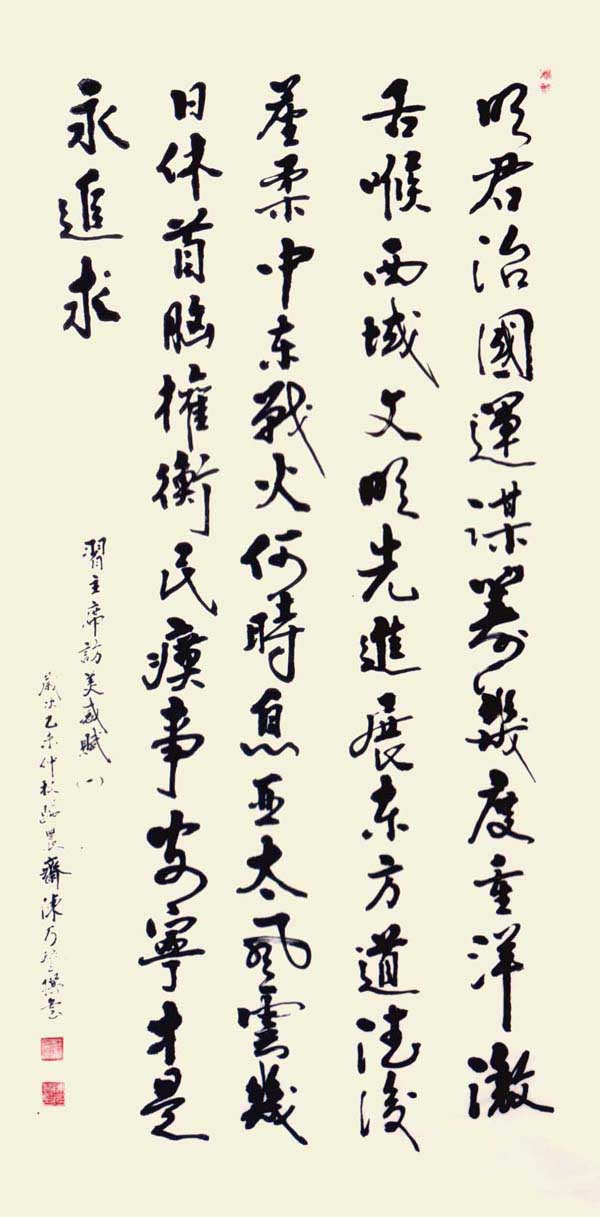 明君治國運谋筹幾度重洋激
舌喉西域文明先進展東方道德
柔中東戰火何時息亞太風雲幾
日休首腦權衡民瘼事安寧才是
永追求
習主席訪美感賦(一)
歲次乙未仲秋農齋陳乃撰書